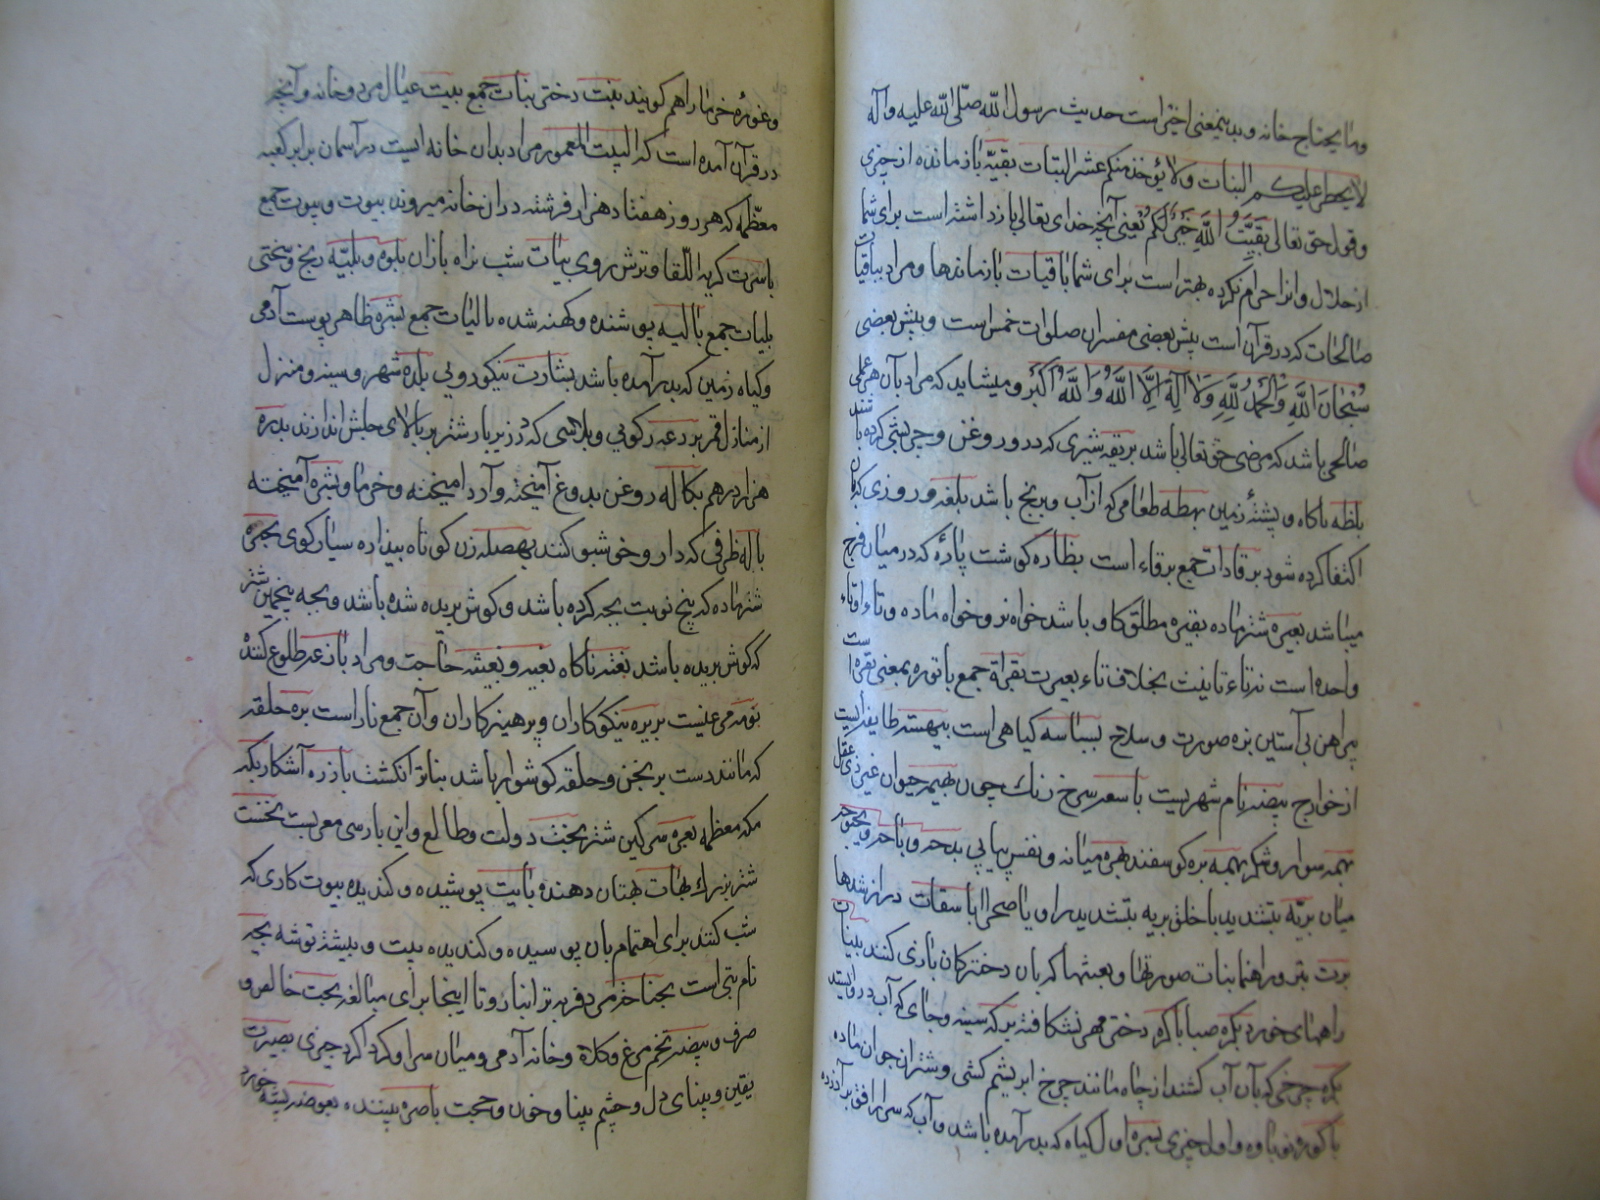 وما یحتاج خانه و بدیمعنی اخیر است حدیث رسول الله صلّی الله علیه وآله
لا یحظر علیکم البنات ولا یؤخذ منکم عشر البتات بقیّه باز مانده از چیزی
وقول حق تعالی بَقِیَّتُ اللَّهِ خَیْرٌ لَکُمْ یعنی آنچه خدای تعالی باز داشته است برای شما
از حلال و انرا حرام نکرده بهتر است برای شما باقیات بازماندها و مراد بباقیات
صالحات که در قرآن است پیش بعضی مفسران صلوات خمس است و پیش بعضی
سُبْحَانَ اللَّهِ وَالْحَمْدُ لِلَّهِ وَلَا اِلٰهَ اِلَّا اللَّهُ وَاللَّهُ اَکْبَر و میشاید که مراد بآن هر عملی
صالحی باشد که مرضی حق تعالی باشد بریقه شیری که در و روغن و چربشی کرده باشند
بلظه ناکاه و پشتهٔ زمین بهطه طعامی که از آب و برنج باشد بلغه و روزی که بآن
اکتفا کرده شود برقادات جمع برقاء است بظاره کوشت پارهٔ که در میان فرج
میباشد بعیره شتر ماده بقره مطلق کاو باشد خواه نر و خواه ماده و تاء او تاء
واحده است نه تاء تانیث بخلاف تاء بعیرت بقراة جمع باقوره بمعنی بقره است
پیراهن بی آستین بزه صورت و سلاح بسباسه کیاهی است بیهسته طایفه‌ایست
از خوارج بیضه نام شهریست باسعه سرخ رنك چون بهیمه حیوان غیر ذی عقل
بهمه سوار و شکر بهمه بره کوسفند بهره میانه و نفس پیاپی
میان بریّه بتشدید با خلق بریه بتشدید را و یا صحرا باسقات درازشدها
برت تبر و راهنما بنات صورتها و لعبتها که بآن دخترکان بازی کنند بینات
راههای خورد بکره صبا باکره دختر مهر نشکافته برکه سینه و جای که آب در و ایستد
بکره چرخی که بآن آب کشند از چاه مانند چرخ ابریشم کشی و شتران جوان ماده
باکوره نوباوه و اول چیزی بسره اول کیاه که بدر آمده باشد و آب که
وغورهٔ خرما را هم کویند بنت دختر بنات جمع بیت عیال مرد و خانه و آنچه
در قرآن آمده است که البیت المعمور مراد بدان خانه ایست در آسمان برابر کعبه
معظّمه که هر روز هفتاد هزار فرشته در ان خانه میروند بیوت و بیوت جمع
باسرت کریه اللّقا و ترش روی بیات شب نزاه بازان بلوه و بلیّه رنج و سختی
بلیات جمع بالیه پوشنده و کهنه شده بالیات جمع بشره ظاهر پوست آدمی
وکیاه زمین که بدر آمده باشد بشارت نیکورویی بلده شهر و سینه و منزل
از منازل قمر بردعه رکویی و پلاسی که در زیر بار شتر بر بالای جلش اندازند بدره
هزار درهم بکاله روغن بدوغ آمیخته و آرد امیخته و خرما و بشره آمیخته
باله ظرفی که دارو خوشبو کنند بهصله زن کوتاه بیذاره بسیار کوی بحیره
شتر ماده که پنج نوبت بچه کرده باشد و کوش بریده شده باشد و بچه پنجمین شتر
که کوش بریده باشد بغته ناکاه بغیه و بغیته حاجت و مراد بازغه طلوع کننده
بومه مرغیست برره نیکوکاران و پرهیزکاران و آن جمع بار است بره حلقه
که مانند دست برنجن و حلقه کوشوار باشد بنانه انکشت بارزه آشکار بکّه
مکه معظمه بعره سرکین شتر بخت دولت و طالع و این پارسی معربست بختت
شتر بزرك بهات بهتان دهنده بایت پوشیده و کندیده بیوت کاری که
شب کنند برای اهتمام بآن پوسیده و کندیده بیت و بیشه توشه بجّه
نام بتی است مرد فربه تر و تا اینجا برای مبالغه بحت خالص و
صرف و بیضه تخم مرغ و کلاه و خانه آدمی و میان سرا و کرداکرد چیزی بصیرت
یقین و بینای دل و چشم بینا و خون و حجت باصره بیننده بعوضه پشه خورد